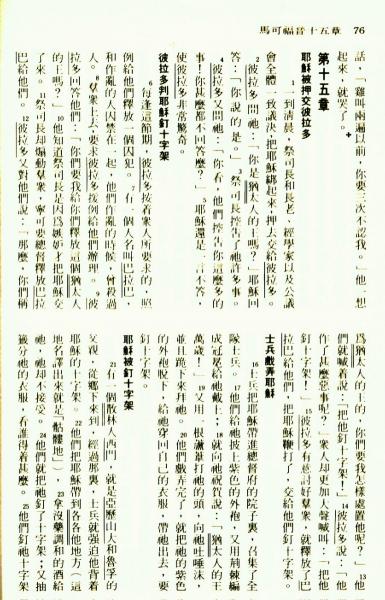 馬可福音十五章 76
話,「雞叫兩遍以前,你要三次不認我。」他一想
起來,就哭了。
第十五章
耶穌被押交彼拉多
1 一到清晨,祭司長和長老、經學家以及公議
會全體一致議決,把耶穌綁起來,押去交給彼拉多。
2 彼拉多問祂:「你是猶太人的王嗎?」耶穌回
答:「你說的是。」3 祭司長控告了祂許多事。
4 彼拉多又問祂:「你看,他們控告你這麼多的
事!你甚麼都不回答麼?」5 耶穌還是一言不答,
使彼拉多非常驚奇。
彼拉多判耶穌釘十字架
6 每逢這節期,彼拉多按着眾人所要求的,照
例給他們釋放一個囚犯。7 有一個人名叫巴拉巴,
和作亂的人囚禁在一起,他們作亂的時候,曾殺過
人。8 羣眾上去,要求彼拉多按例給他們辦理。9 彼
拉多回答他們:「你們要我給你們釋放這個猶太人
的王嗎?」10 他知道祭司長是因爲嫉妒才把耶穌交
了來。11 祭司長却煽動羣眾,寧可要總督釋放巴拉
巴給他們。12 彼拉多又對他們說:「那麼,你們稱
爲猶太人的王的,你們要我怎樣處置他呢?」13 他
們就喊着說:「把他釘十字架!」14 彼拉多說:「他
作了甚麼惡事呢?」眾人却更加大聲喊叫:「把他
釘十字架!」15 彼拉多有意討好羣眾,就釋放了巴
拉巴給他們,把耶穌鞭打了,交給他們釘十字架。
士兵戲弄耶穌
16 士兵把耶穌帶進總督府的院子裏,召集了全
隊士兵。17 他們給祂披上紫色的外袍,又用荊棘編
成冠冕給祂戴上;18 就向祂祝賀說:「猶太人的王
萬歲!」19 又用一根蘆葦打祂的頭,向祂吐唾沫,
並且跪下來拜祂。20 他們戲弄完了,就把祂的紫色
的外袍脫下,給祂穿回自己的衣服,帶祂出去,要
釘十字架。
耶穌被釘十字架
21 有一個古利奈人西門,就是亞歷山大和魯孚的
父親,從鄉下來到,經過那裏,士兵就強迫他背着
耶穌的十字架。22 他們把耶穌帶到各各他地方(這
地名譯出來就是「骷髏地」),23 拿沒藥調和的酒給
祂,祂却不接受。24 他們就把祂釘了十字架;又抽
籤分祂的衣服,看誰得着甚麼。25 他們釘祂十字架